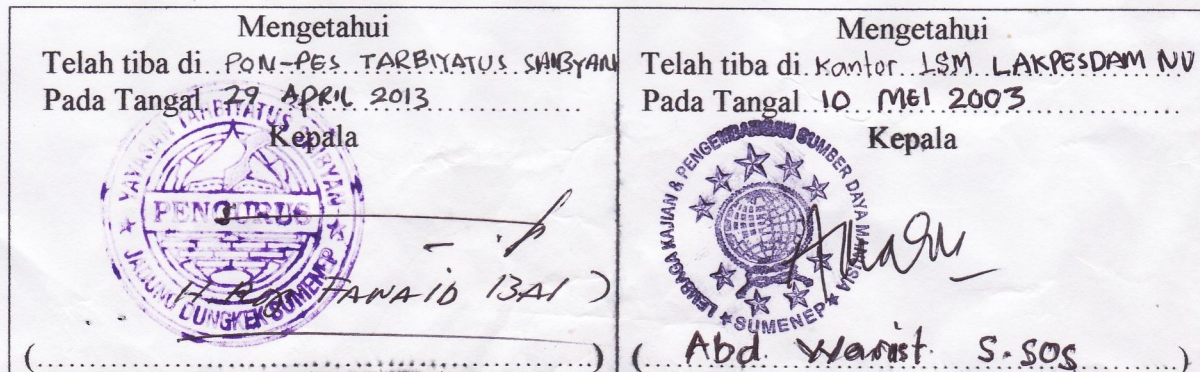 Mengetahui
Telah tiba di PON-PES TARBIYATUS SHIBYAN
Pada Tangal 29 APRIL 2013
Kepala
YAYASAN TARBIYATUS SHIBYAN
PENGURUS
JADUNG DUNGKEK SUMENEP
H. FANAID BAI )
(..........)
Mengetahui
Telah tiba di Kantor LSM LAKPESDAM NU
Pada Tangal 10 MEI 2003
Kepala
LEMBAGA KAJIAN & PENGEMBANGAN SUMBER DAYA MANUSIA
SUMENEP
( Abd. Warist S.SOS )